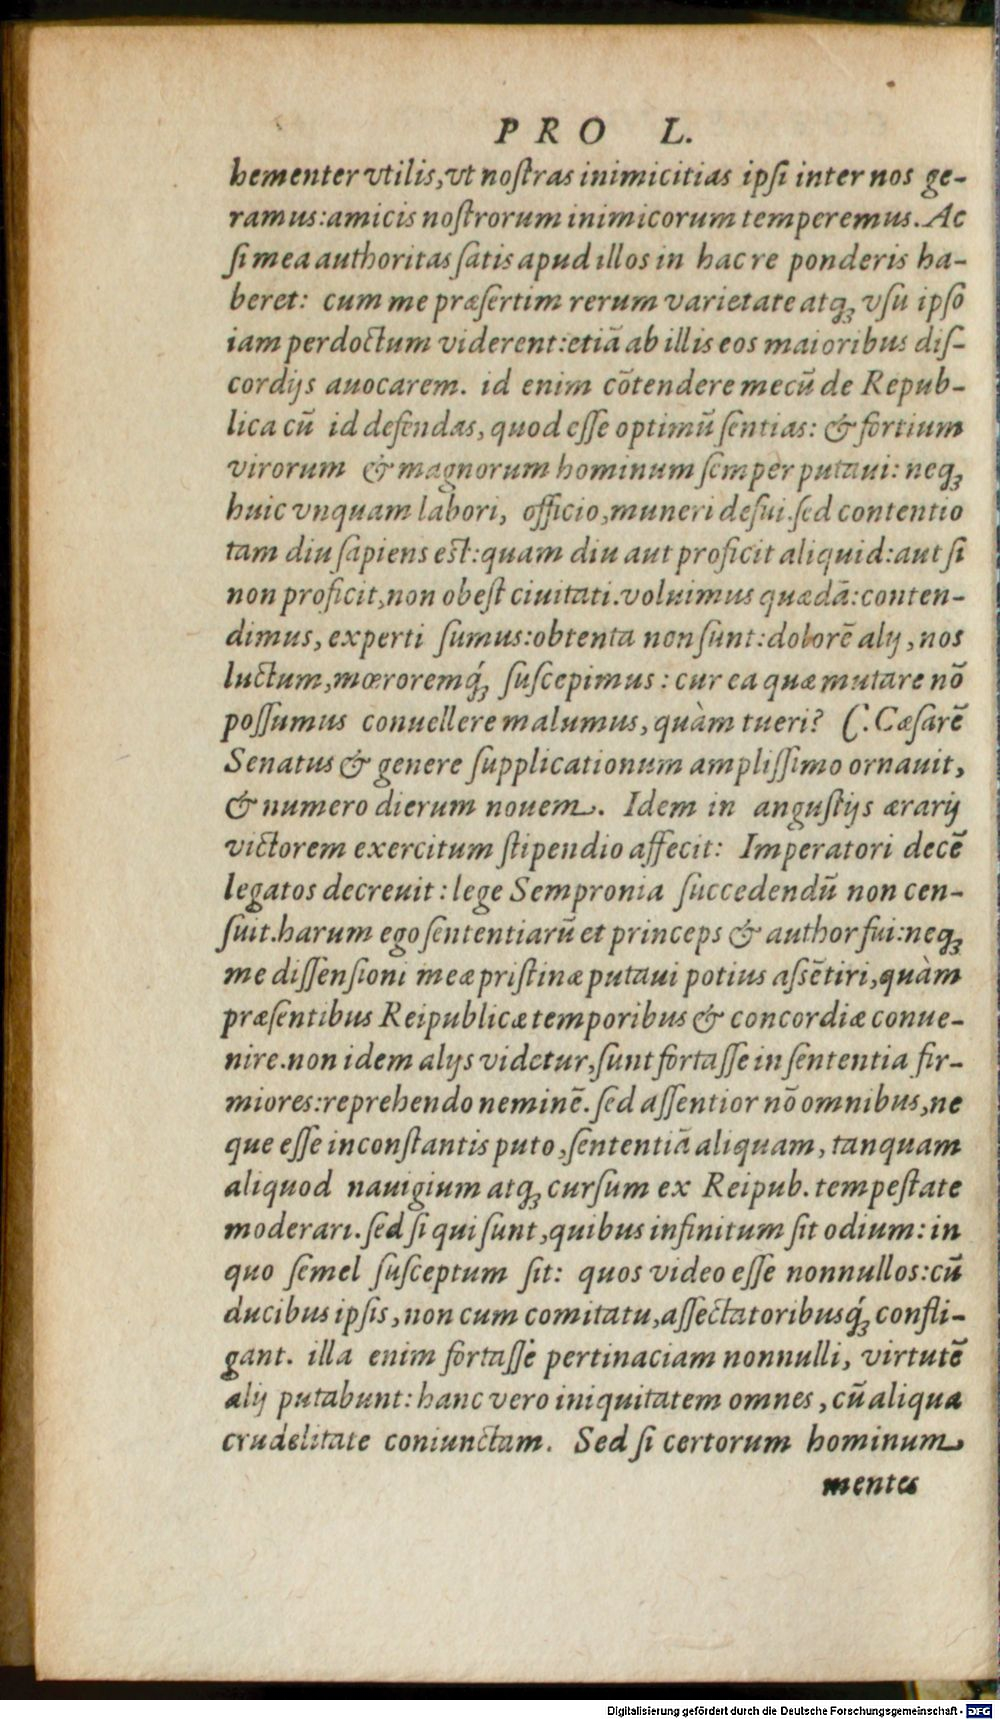 PRO L.
hementer vtilis, vt noſtras inimicitias ipſi inter nos ge-
ramus: amicis noſtrorum inimicorum temperemus. Ac
ſi mea authoritas ſatis apud illos in hac re ponderis ha-
beret: cum me præſertim rerum varietate atq; vſu ipſo
iam perdoctum viderent: etiā ab illis eos maioribus diſ-
cordijs auocarem. id enim cōtendere mecū de Repub-
lica cū id defendas, quod eſſe optimū ſentias: & fortium
virorum & magnorum hominum ſemper putaui: neq;
huic vnquam labori, officio, muneri defui. ſed contentio
tam diu ſapiens eſt: quam diu aut proficit aliquid: aut ſi
non proficit, non obeſt ciuitati. voluimus quædā: conten-
dimus, experti ſumus: obtenta non ſunt: dolorē alij, nos
luctum, mœroremq́; ſuſcepimus: cur ea quæ mutare nō
poſſumus conuellere malumus, quàm tueri? C. Cæſarē
Senatus & genere ſupplicationum ampliſſimo ornauit,
& numero dierum nouem. Idem in anguſtijs ærarij
victorem exercitum ſtipendio affecit: Imperatori decē
legatos decreuit: lege Sempronia ſuccedendū non cen-
ſuit. harum ego ſententiarū et princeps & author fui: neq;
me diſſenſioni meæ priſtinæ putaui potius aſsētiri, quàm
præſentibus Reipublicæ temporibus & concordiæ conue-
nire. non idem alijs videtur, ſunt fortaſſe in ſententia fir-
miores: reprehendo neminē. ſed aſſentior nō omnibus, ne
que eſſe inconſtantis puto, ſententiā aliquam, tanquam
aliquod nauigium atq; curſum ex Reipub. tempeſtate
moderari. ſed ſi qui ſunt, quibus infinitum ſit odium: in
quo ſemel ſuſceptum ſit: quos video eſſe nonnullos: cū
ducibus ipſis, non cum comitatu, aſſectatoribusq́; confli-
gant. illa enim fortaſſe pertinaciam nonnulli, virtutē
alij putabunt: hanc vero iniquitatem omnes, cū aliqua
crudelitate coniunctam. Sed ſi certorum hominum
mentes
Digitalisierung gefördert durch die Deutsche Forschungsgemeinschaft - DFG